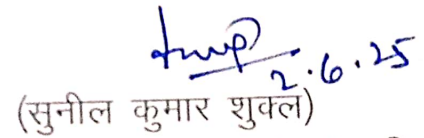 2.6.25
(सुनील कुमार शुक्ल)